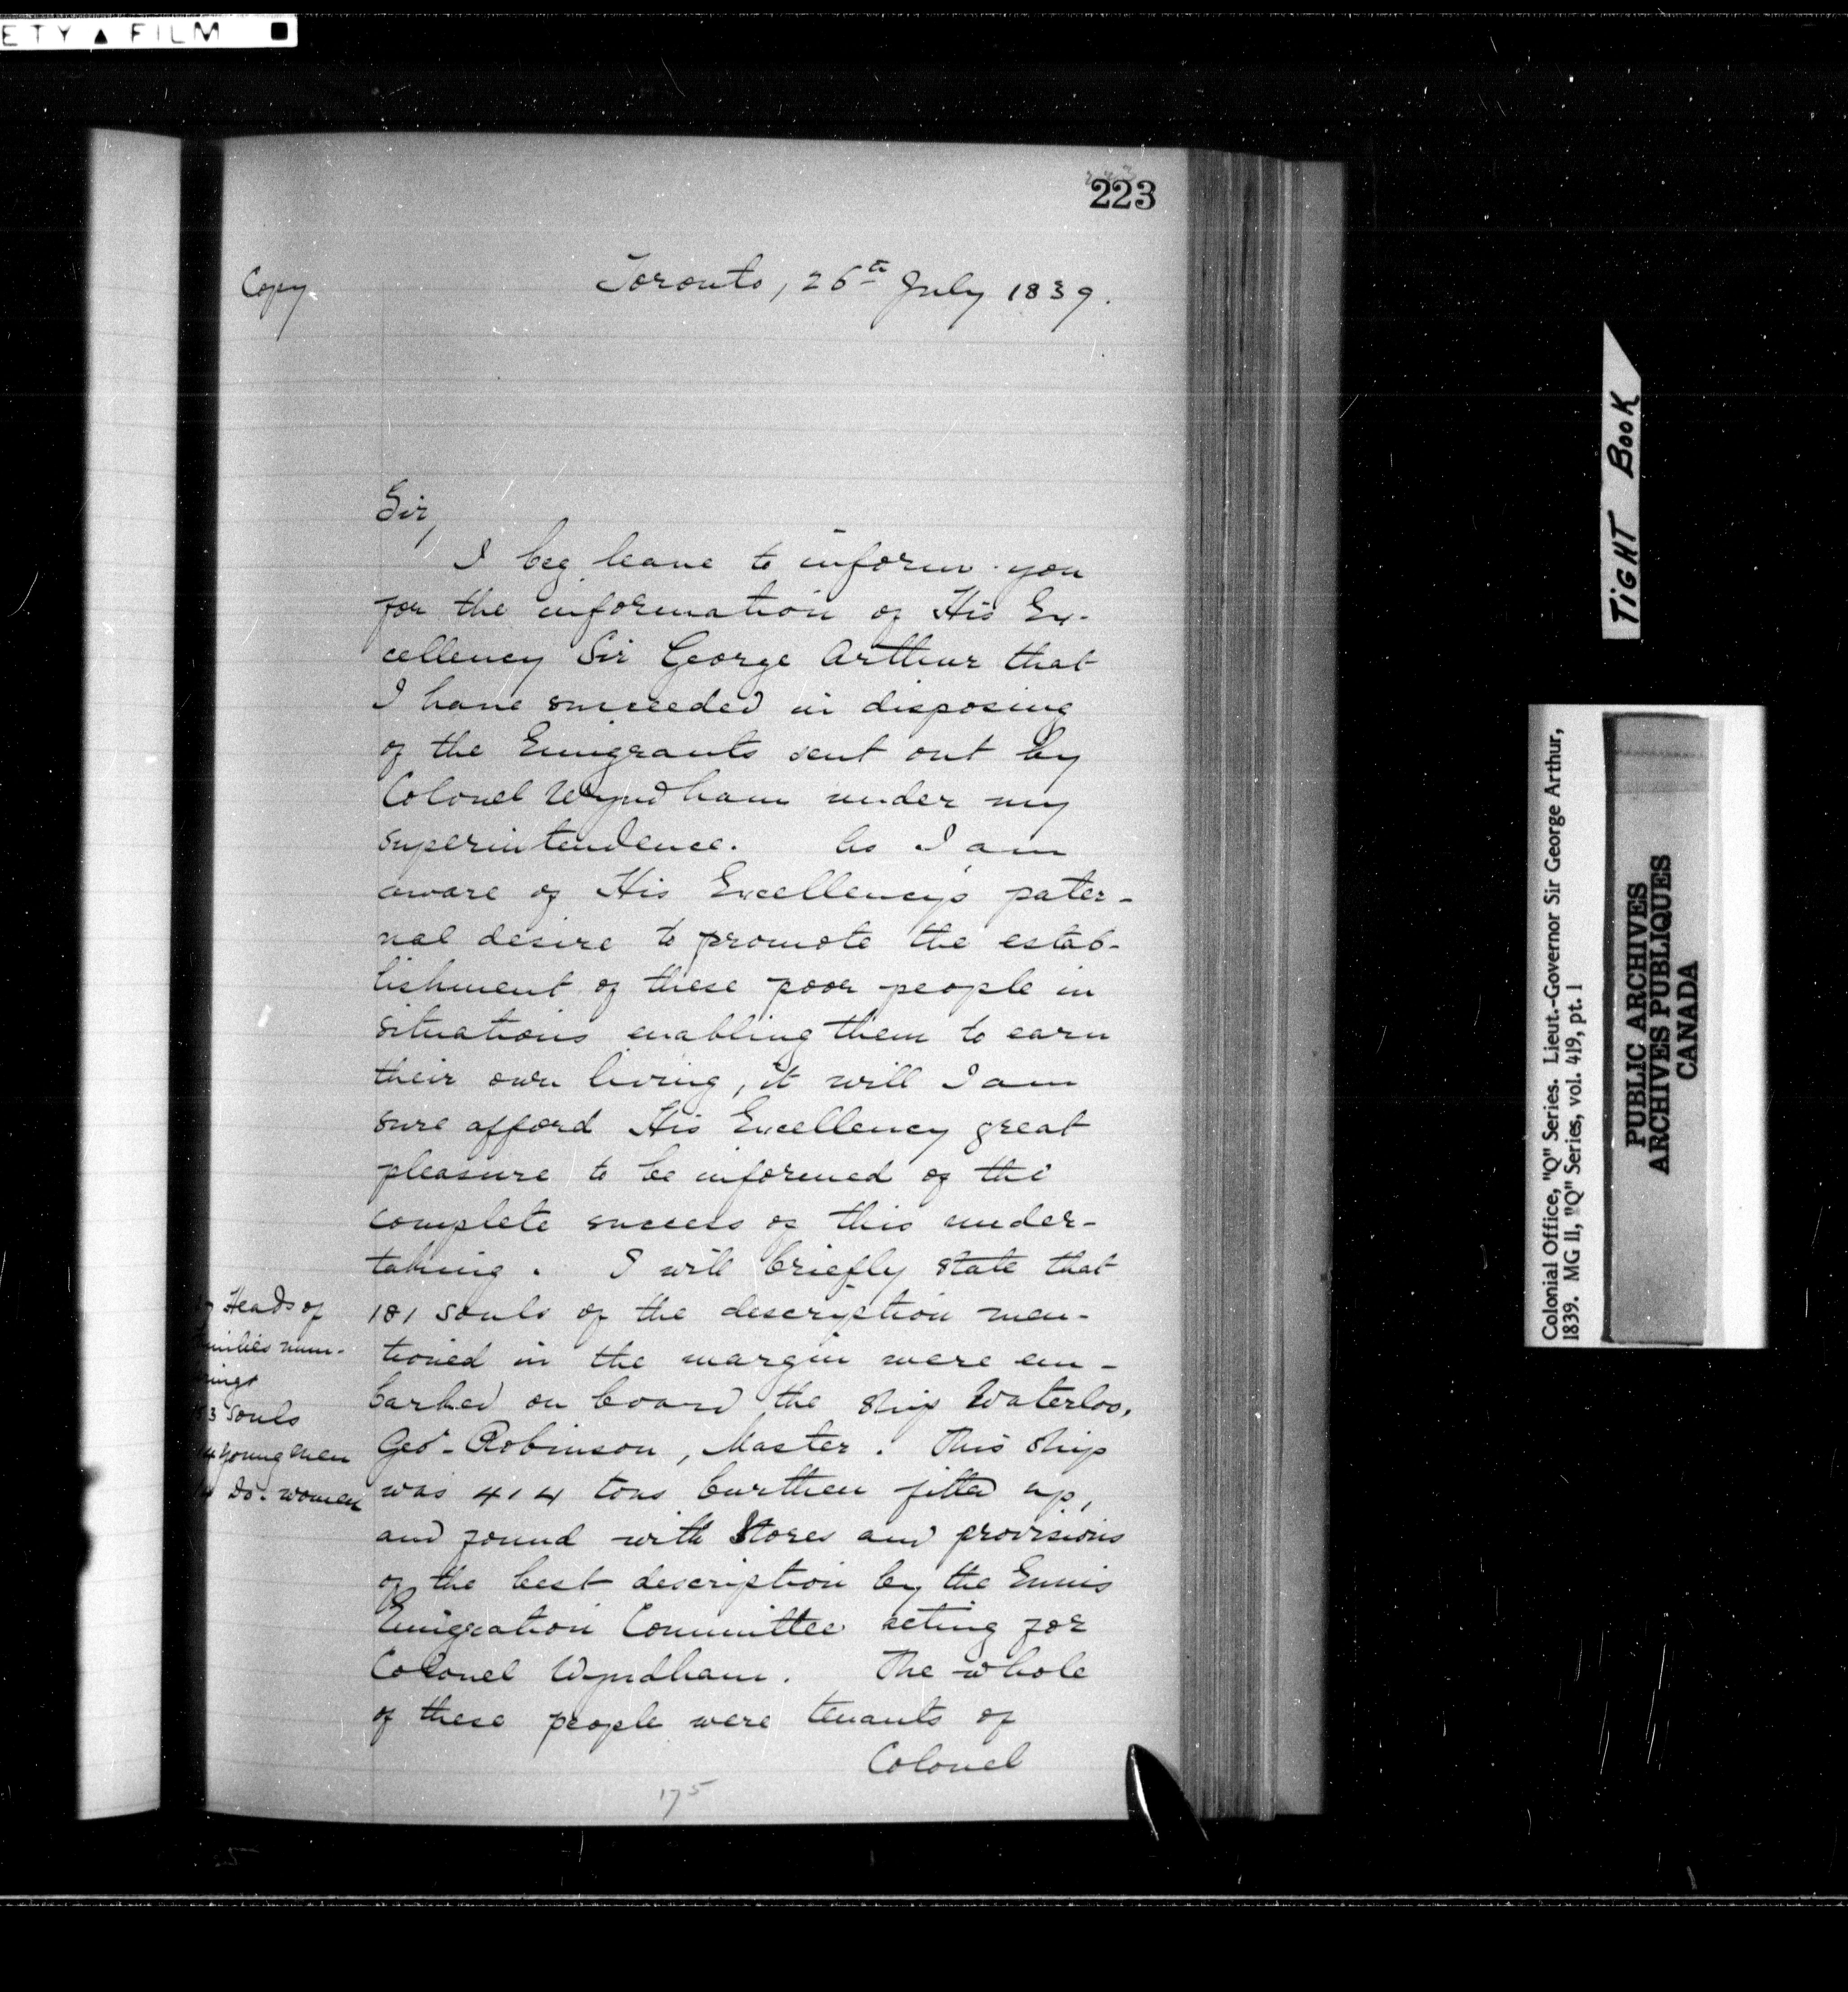 ETY ▲ FILM ■
223
Copy.
Toronto, 26th July 1839.
Sir,
I beg leave to inform you
for the information of His Ex-
cellency Sir George Arthur that
I have succeeded in disposing
of the Emigrants sent out by
Colonel Wyndham under my
superintendence. As I am
aware of His Excellency's pater-
nal desire to promote the estab-
lishment of these poor people in
situations enabling them to earn
their own living, it will I am
sure afford His Excellency great
pleasure to be informed of the
complete success of this under-
taking. I will briefly state that
181 souls of the description men-
tioned in the margin were em-
barked on board the ship Waterloo,
Geo. Robinson, Master. This ship
was 414 tons burthen fitted up,
and found with Stores and provisions
of the best description by the Ennis
Emigration Committee acting for
Colonel Wyndham. The whole
of these people were tenants of
Colonel
Heads of
milies num-
rings
53 Souls
14 young men
14 Do. women
175
TIGHT BOOK
Colonial Office, "Q" Series. Lieut.-Governor Sir George Arthur,
1839. MG 11, "Q" Series, vol. 419, pt. 1
PUBLIC ARCHIVES
ARCHIVES PUBLIQUES
CANADA